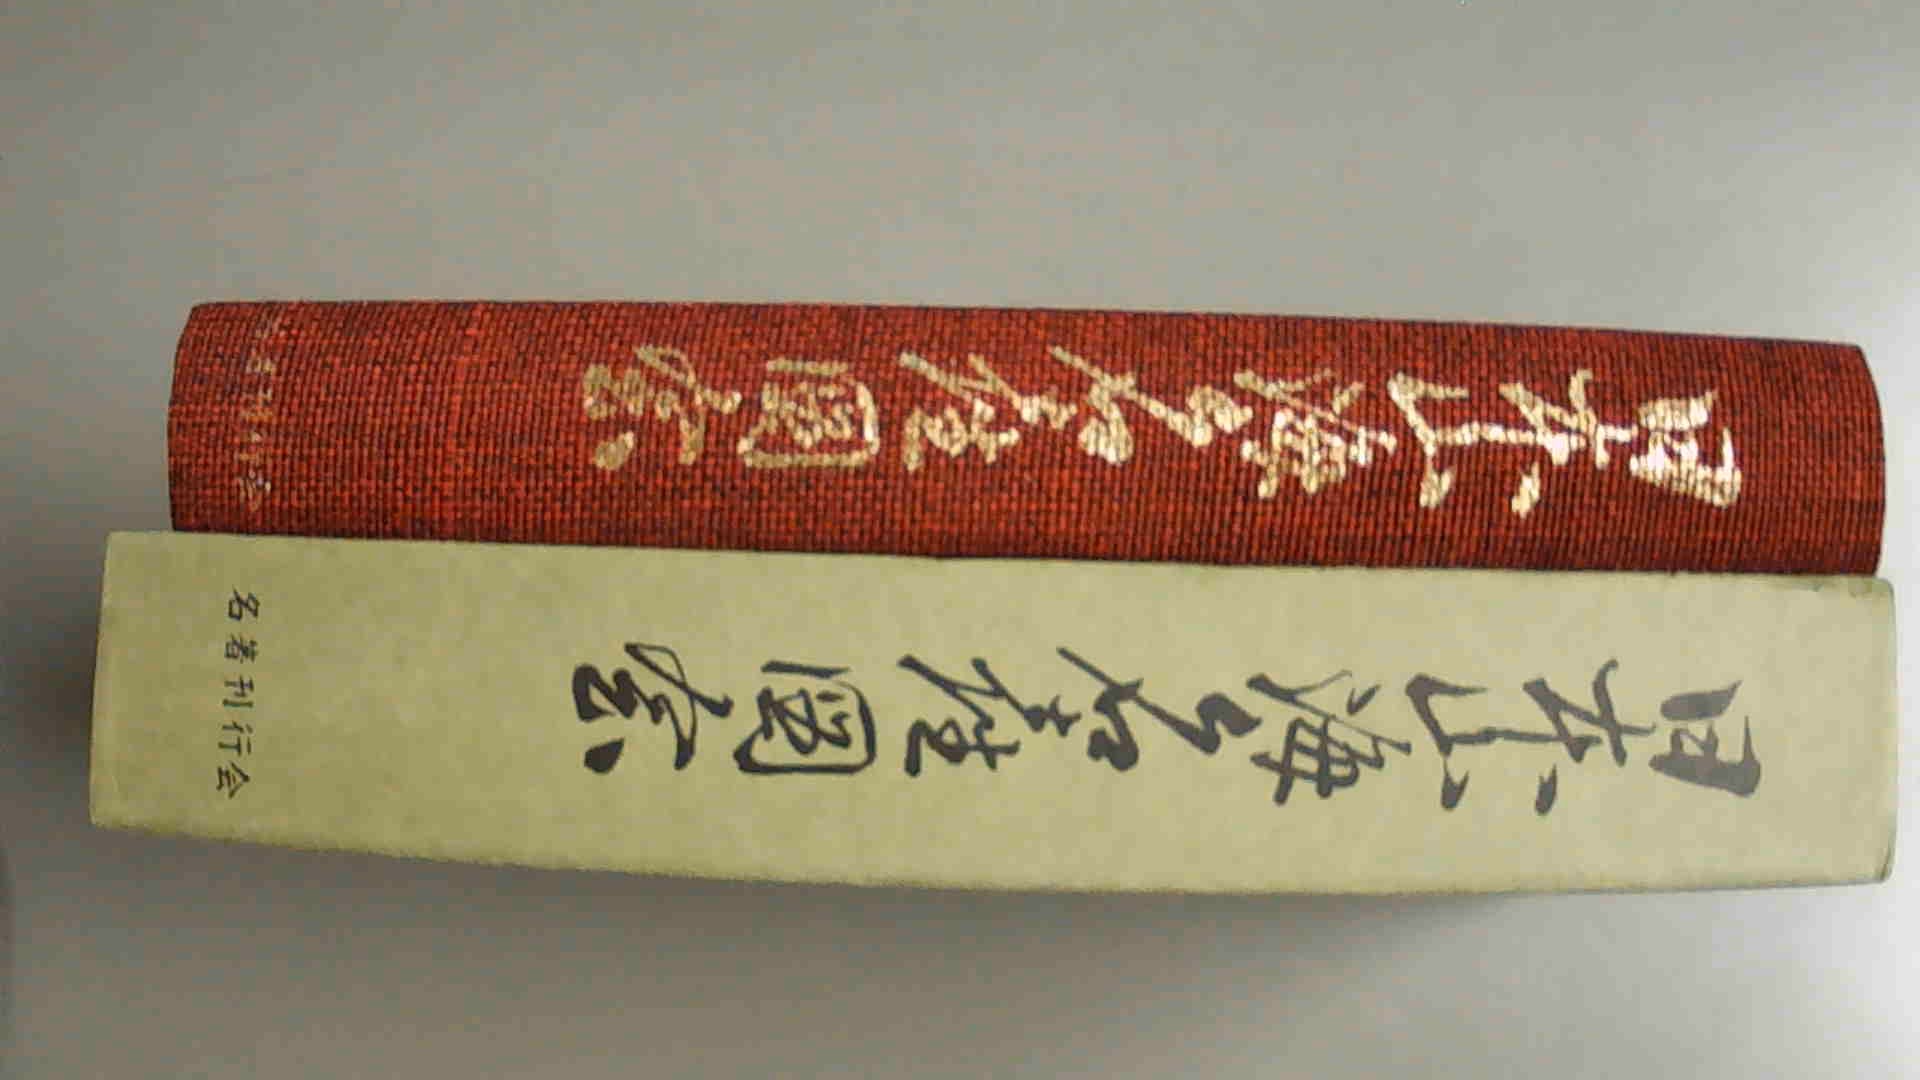 日本山海名産圖會
名著刊行会
日本山海名産圖會
名著刊行会